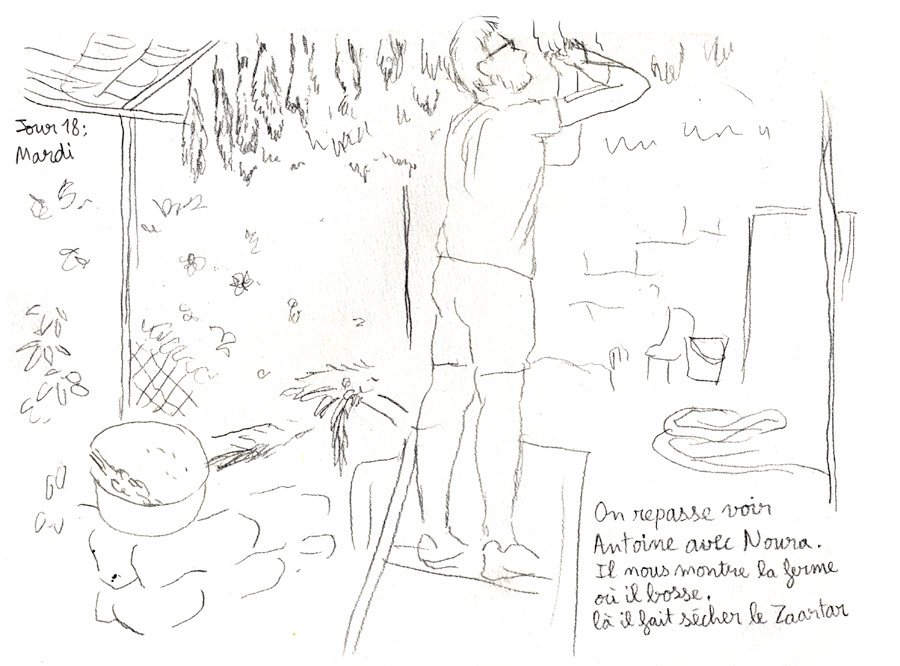 Jour 18:
Mardi
On repasse voir
Antoine avec Noura.
Il nous montre la ferme
où il bosse.
là il fait sécher le Zaartar